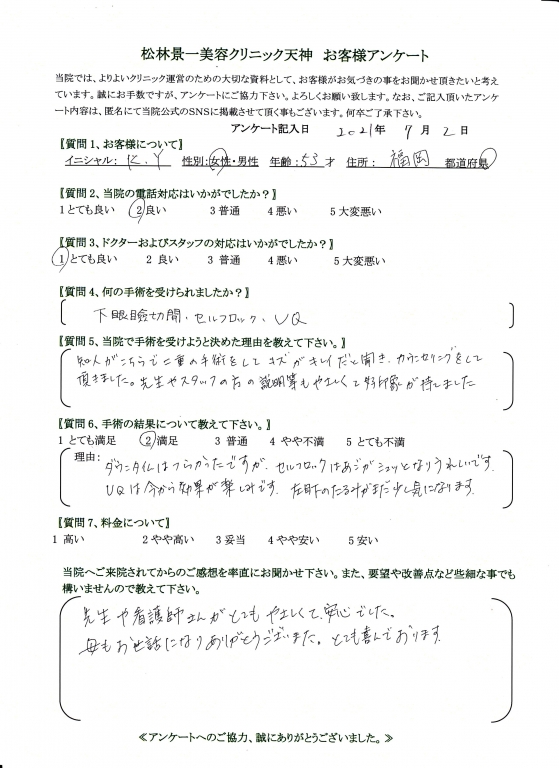 松林景一美容クリニック天神　お客様アンケート
当院では、よりよいクリニック運営のための大切な資料として、お客様がお気づきの事をお聞かせ頂きたいと考え
ています。誠にお手数ですが、アンケートにご協力下さい。よろしくお願い致します。なお、ご記入頂いたアンケ
ート内容は、匿名にて当院公式のSNSに掲載させて頂く事もございます。何卒ご了承下さい。
アンケート記入日　2021年　7月　2日
【質問1、お客様について】
イニシャル：K.Y　性別：女性・男性　年齢：53才　住所：福岡　都道府県
【質問2、当院の電話対応はいかがでしたか？】
1とても良い　2良い　3普通　4悪い　5大変悪い
【質問3、ドクターおよびスタッフの対応はいかがでしたか？】
1とても良い　2 良い　3 普通　4悪い　5大変悪い
【質問4、何の手術を受けられましたか？】
下眼瞼切開、セルフロック、UQ
【質問5、当院で手術を受けようと決めた理由を教えて下さい。】
知人がこちらで二重の手術をしてキズがキレイだと聞き、カウンセリングをして
頂きました。先生やスタッフの方の説明等もやさしくて好印象が持てました
【質問6、手術の結果について教えて下さい。】
1 とても満足　2満足　3 普通　4 やや不満　5 とても不満
理由：ダウンタイムはつらかったですが、セルフロックはあごがシュッとなりうれしいです。
UQは今から効果が楽しみです。左目下のたるみがまだ少し気になります。
【質問7、料金について】
1 高い　2やや高い　3妥当　4やや安い　5安い
当院へご来院されてからのご感想を率直にお聞かせ下さい。また、要望や改善点など些細な事でも
構いませんので教えて下さい。
先生や看護師さんがとてもやさしくて、安心でした。
母もお世話になりありがとうございました。とても喜んでおります。
≪アンケートへのご協力、誠にありがとうございました。≫